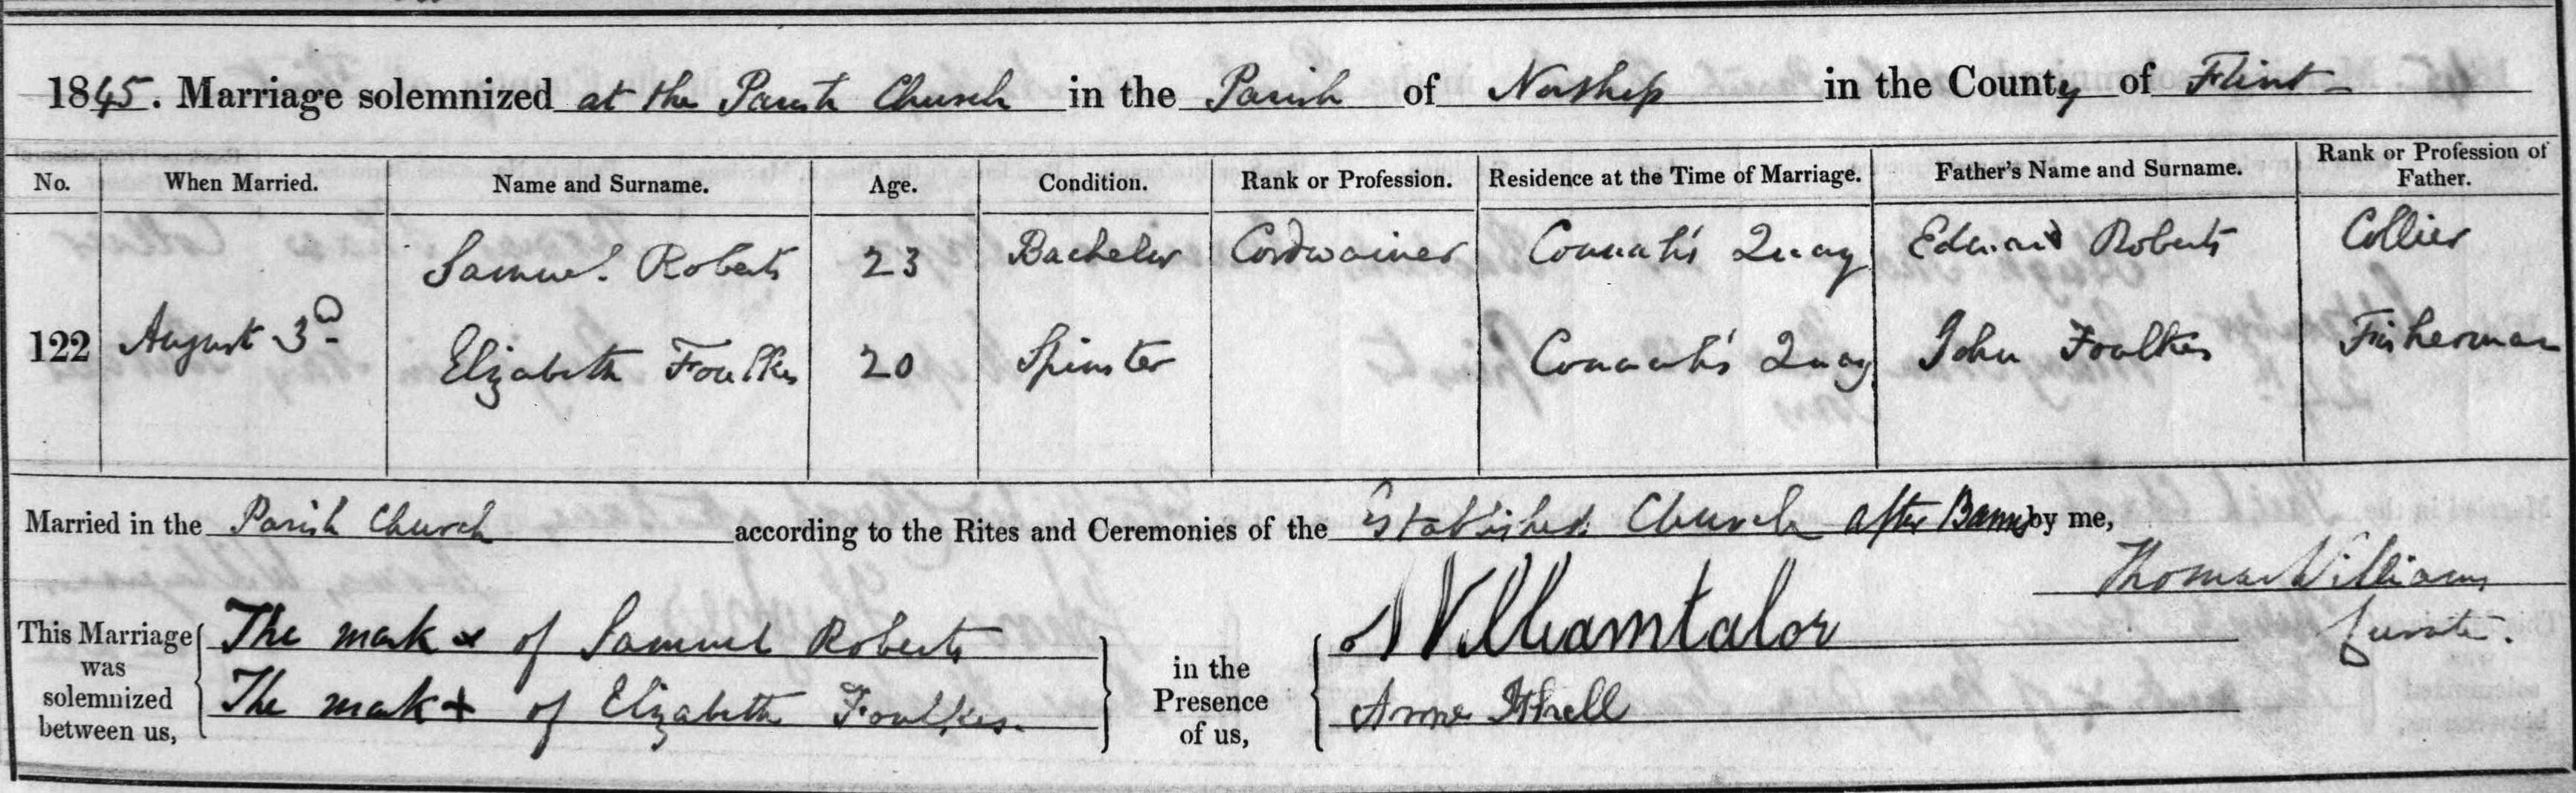 1845. Marriage solemnized at the Parish Church in the Parish of Northop in the County of Flint
No. When Married. Name and Surname. Age. Condition. Rank or Profession. Residence at the Time of Marriage. Father's Name and Surname. Rank or Profession of Father.
Samuel Roberts 23 Bachelor Cordwainer Connah's Quay Edward Roberts Collier
122 August 3d Elizabeth Foulkes 20 Spinster Connah's Quay John Foulkes Fisherman
Married in the Parish Church according to the Rites and Ceremonies of the Established Church after Banns by me,
Thomas Williams
Curate.
This Marriage was solemnized between us, The mark x of Samuel Roberts in the Presence of us, Williamtalor
The mark + of Elizabeth Foulkes. Anne Ithell